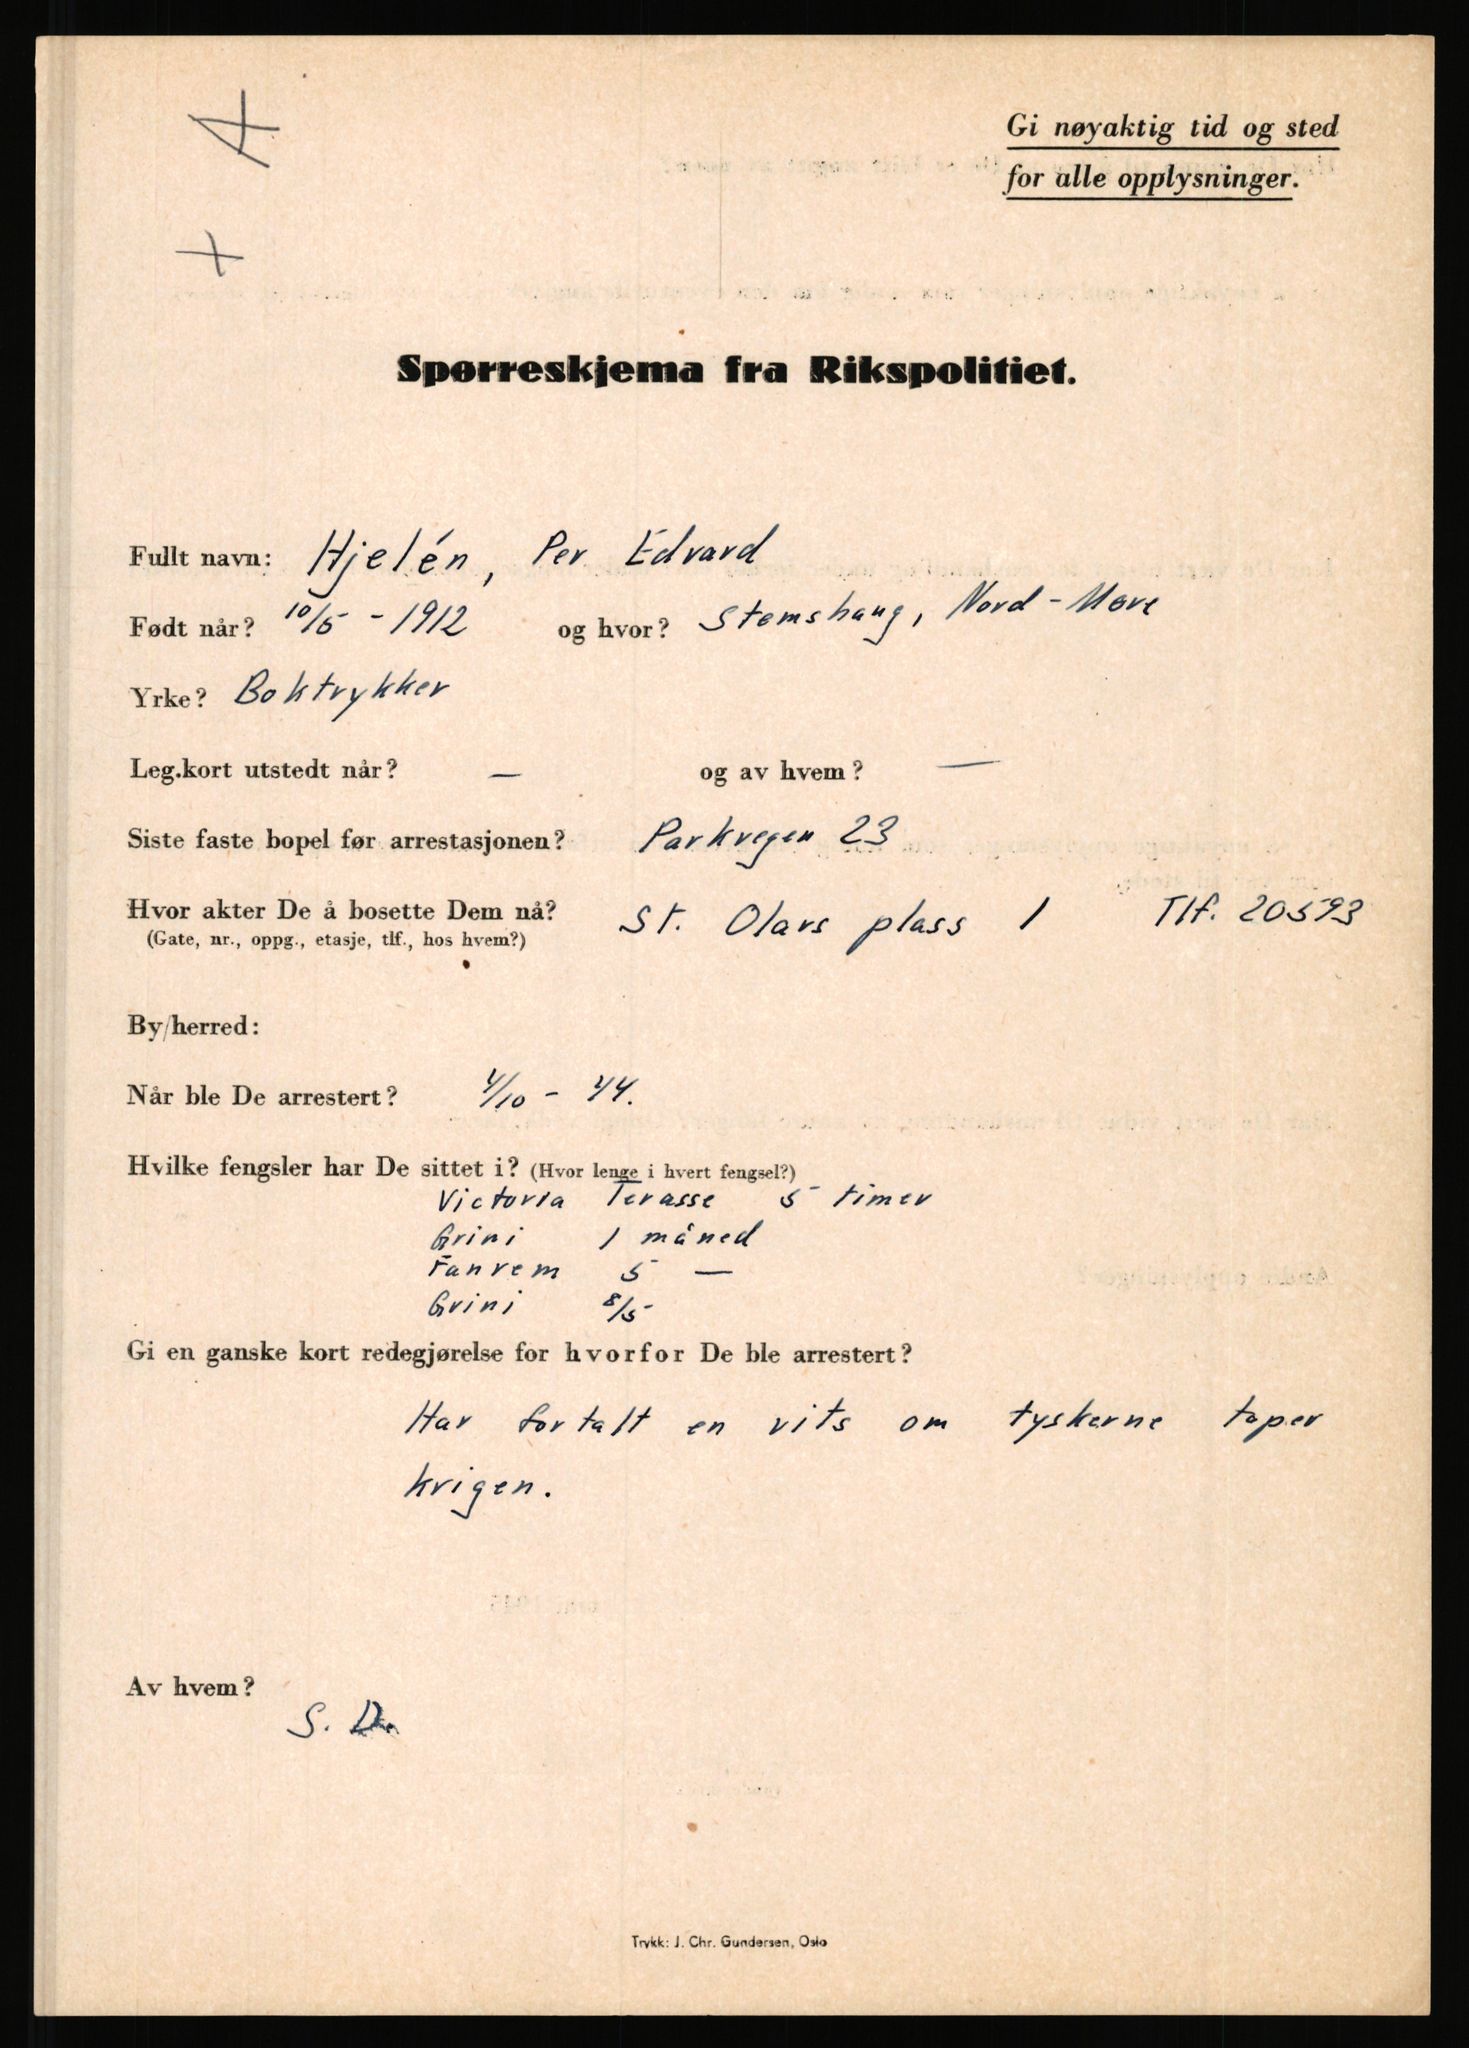 Gi nøyaktig tid og sted
for alle opplysninger.
Spørreskjema fra Rikspolitiet.
Fullt navn: Hjelén, Per Edvard
Født når? 10/5 - 1912 og hvor? Stemshaug, Nord-Møre
Yrke? Boktrykker
Leg.kort utstedt når? — og av hvem? —
Siste faste bopel før arrestasjonen? Parkvegen 23
Hvor akter De å bosette Dem nå? St. Olavs plass 1 Tlf. 20593
(Gate, nr., oppg., etasje, tlf., hos hvem?)
By/herred:
Når ble De arrestert? 4/10 - 44.
Hvilke fengsler har De sittet i? (Hvor lenge i hvert fengsel?)
Victoria Terasse 5 timer
Grini 1 måned
Fanrem 5 —
Grini 8/5
Gi en ganske kort redegjørelse for hvorfor De ble arrestert?
Har fortalt en vits om tyskerne taper
krigen.
Av hvem?
S. D.
Trykk: J. Chr. Gundersen, Oslo